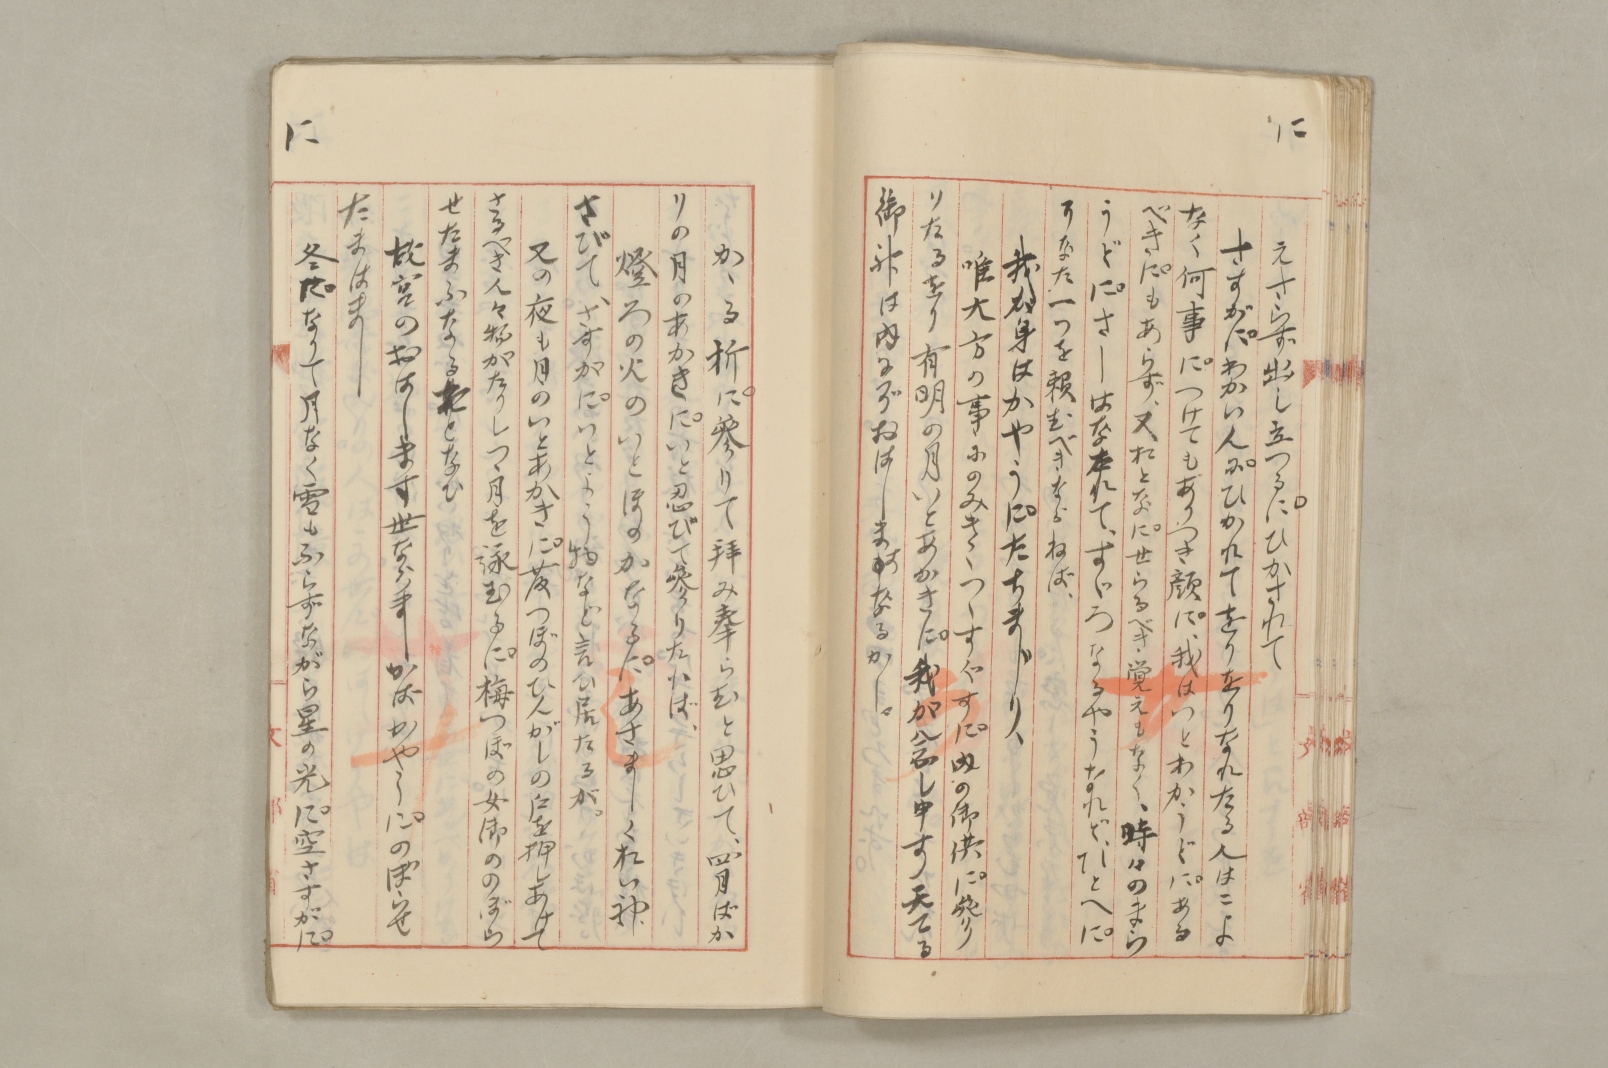 に
えさらず出し立つるに。ひかされて
さすがに。わかい人に。ひかれてをりをりなれたる人はこよ
なく何事に。つけてもありつき顔に。我はいとわかうどに。ある
べきに。もあらず、又おとなに。世らるべき覚えもなく、時々のまら
うどに。さしはなたれて、すゞろなるやうなれど、ひとへに。
そなた一つを頼むべきならねば、
我が身はかやうに。たちまじり、
唯大方の事にのみきゝつゝすぐすに。内の御供に。参り
りたるをり有明の月いとあかきに。我が念し申す天てる
御神は内にぞおはしますなるかし。
に
かゝる折に。參りて拝み奉らむと思ひて、四月ばか
りの月のあかきに。いと忍びて參りたれば、
燈ろの火のいとほのかなるに。あさましくおい神
さびて、さすがに。いとよう物など言ひ居たるが。
又の夜も月のいとあかきに。藤つぼのひんがしの戸を押しあけて
さるべき人々物がたりしつゝ月を詠むるに。梅つぼの女御ののぼら
せたまふなるおとなひ
故宮のおはします世ならましかばかやうに。のぼらせ
たまはまし
冬に。なりて月なく雪もふらずながら星の光に。空さすがに。
文部省